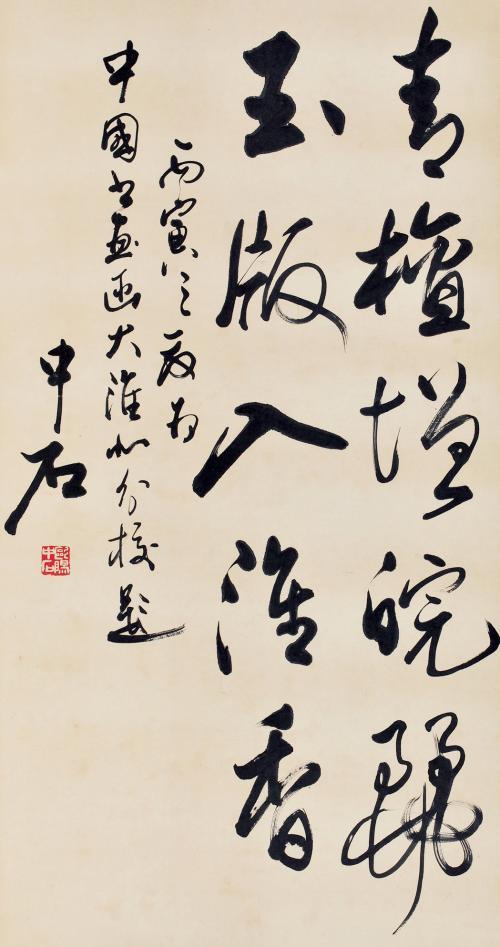 青檀增皖麗
玉版入淮香
丙寅之夏为
中國书画函大淮北分校題
中石
歐陽中石